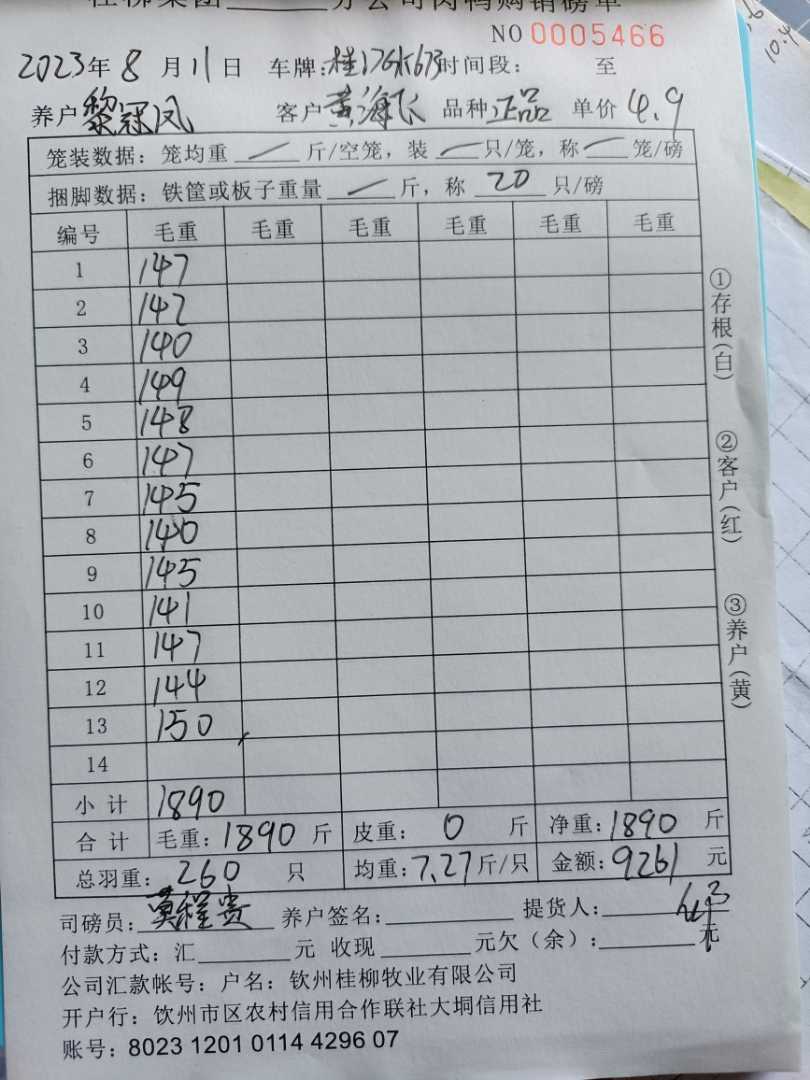 桂柳集团 分公司肉鸭购销磅单
NO 0005466
2023年 8 月 11 日 车牌: 时间段: 至
养户 黎冠凤 客户 黄海飞 品种 正品 单价 4.9
笼装数据: 笼均重 / 斤/空笼, 装 / 只/笼, 称 / 笼/磅
捆脚数据: 铁筐或板子重量 / 斤, 称 20 只/磅
编号 毛重 毛重 毛重 毛重 毛重 毛重
1 147
2 142
3 140
4 149
5 148
6 147
7 145
8 140
9 145
10 141
11 147
12 144
13 150
14
小计 1890
合计 毛重: 1890 斤 皮重: 0 斤 净重: 1890 斤
总羽重: 260 只 均重: 7.27 斤/只 金额: 9261 元
司磅员: 莫程贵 养户签名: 提货人:
付款方式: 汇 元 收现 元欠(余): 元
公司汇款帐号: 户名: 钦州桂柳牧业有限公司
开户行: 钦州市区农村信用合作联社大垌信用社
账号: 8023 1201 0114 4296 07
①存根(白)
②客户(红)
③养户(黄)